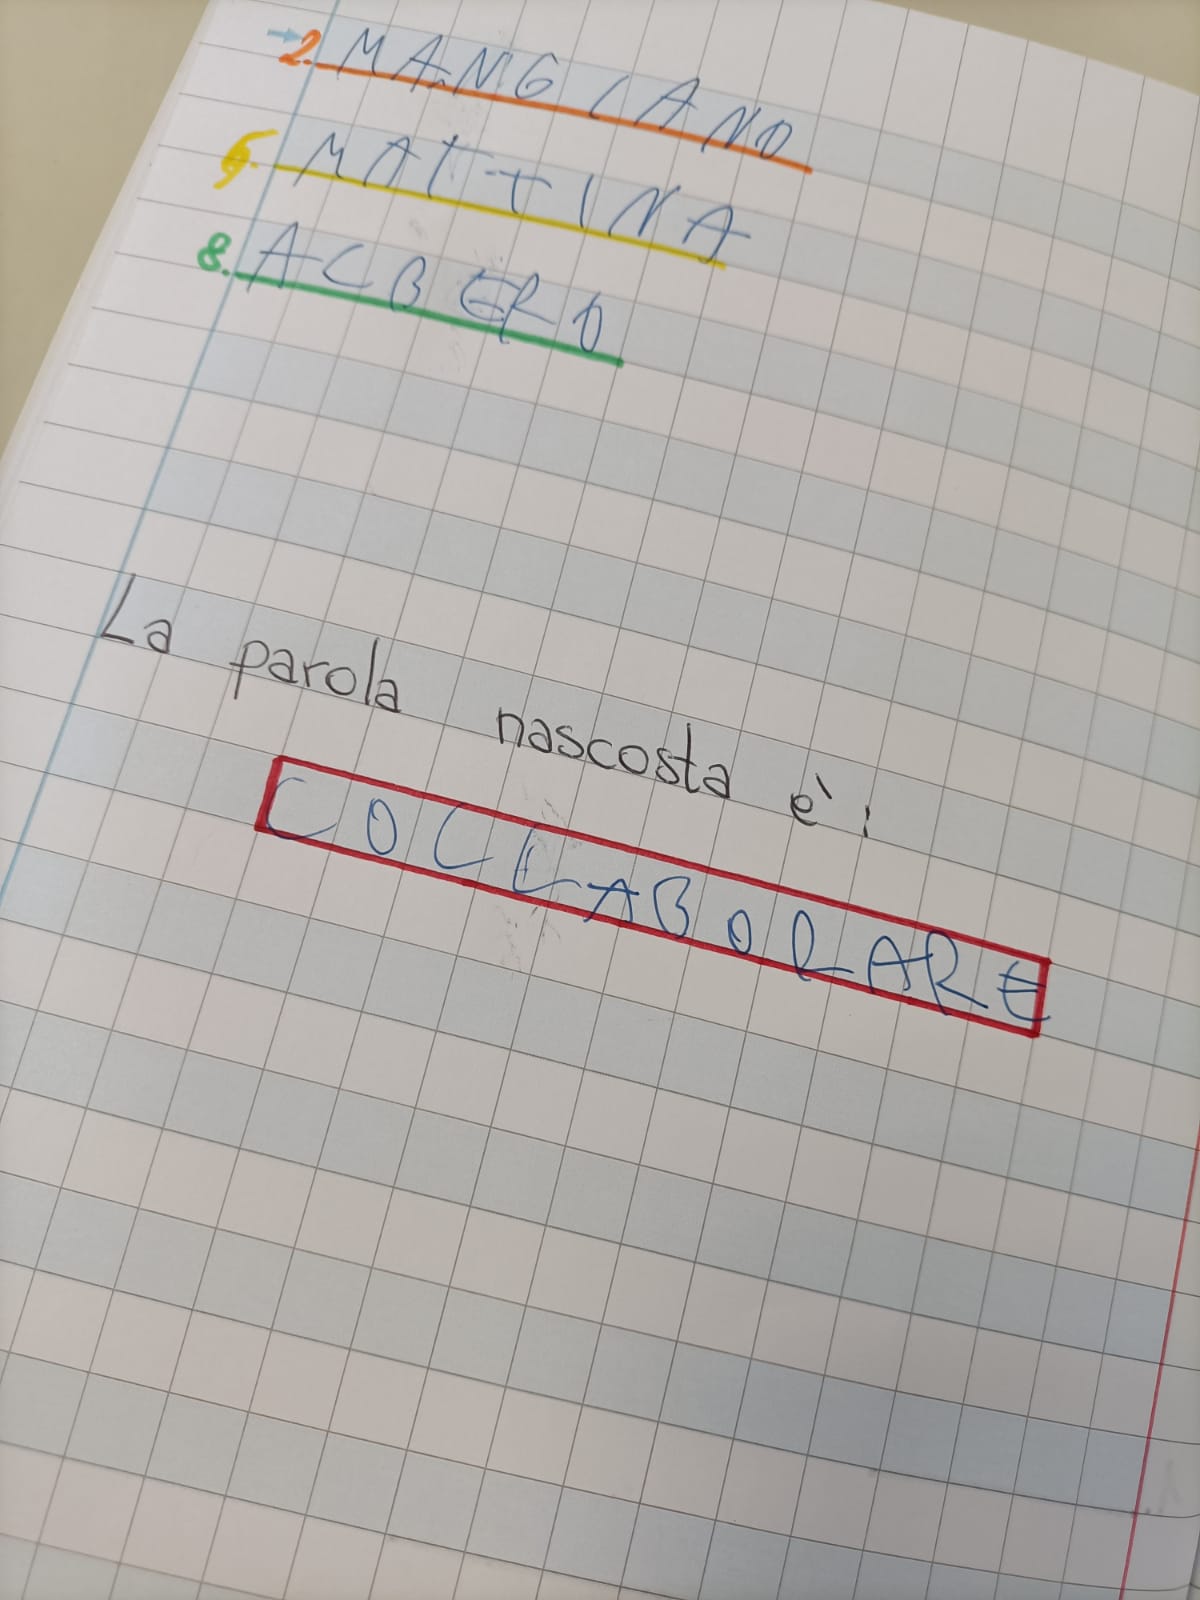 →2. MANGIANO
6. MATTINA
8. ALBERO
La parola nascosta è:
COLLABORARE